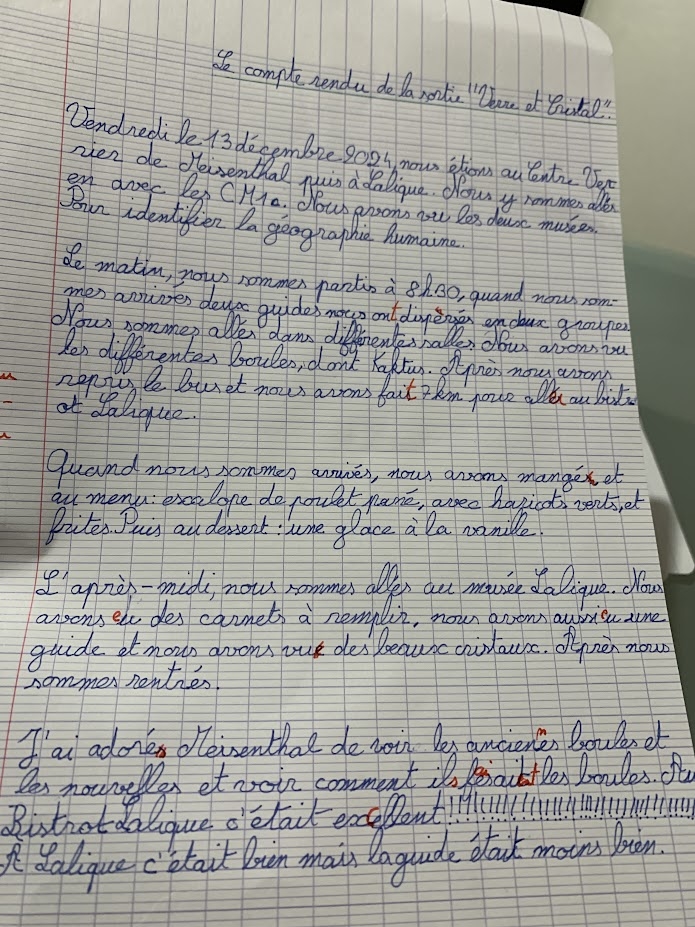 Le compte rendu de la sortie "Verre et Cristal".
Vendredi le 13 décembre 2024, nous étions au Centre Ver-
rier de Meisenthal puis à Lalique. Nous y sommes allés
en avec les CM1a. Nous avons vu les deux musées.
Pour identifier la géographie humaine.
Le matin, nous sommes partis à 8h30, quand nous som-
mes arrivés deux guides nous ont dispersés en deux groupes
Nous sommes allés dans différentes salles. Nous avons vu
les différentes boules, dont Kaktus. Après nous avons
repris le bus et nous avons fait 7 km pour aller au bistr
ot Lalique.
Quand nous sommes arrivés, nous avons mangé, et
au menu : escalope de poulet pané, avec haricots verts, et
frites. Puis au dessert : une glace à la vanille.
L'après-midi, nous sommes allés au musée Lalique. Nous
avons eu des carnets à remplir, nous avons aussi eu une
guide et nous avons vu des beaux cristaux. Après nous
sommes rentrés.
J'ai adoré Meisenthal de voir les anciennes boules et
les nouvelles et voir comment ils faisait les boules. Au
Bistrot Lalique c'était excellent !!!!!!!!!!!!!!!!!!!!!!!!!!!!!!
A Lalique c'était bien mais la guide était moins bien.